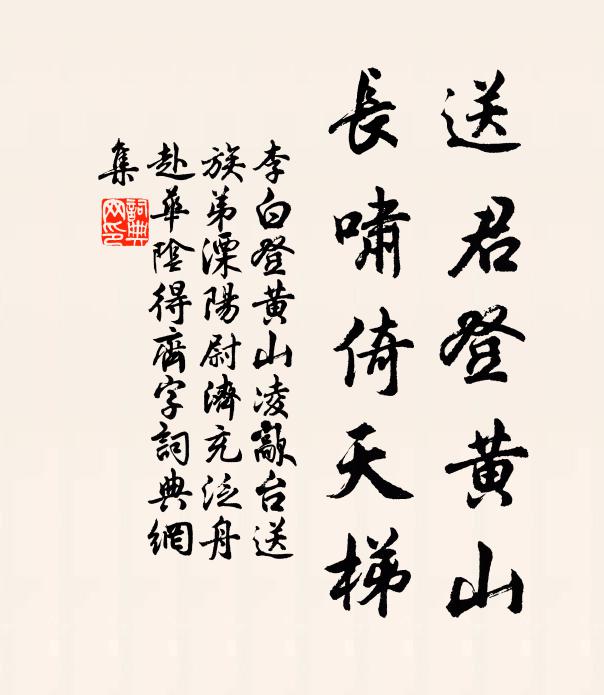 送君登黄山
長嘯倚天梯
李白登黄山凌歊台送
族弟溧陽尉濟充泛舟
赴華陰得齊字詞典網
集
詞典
网印